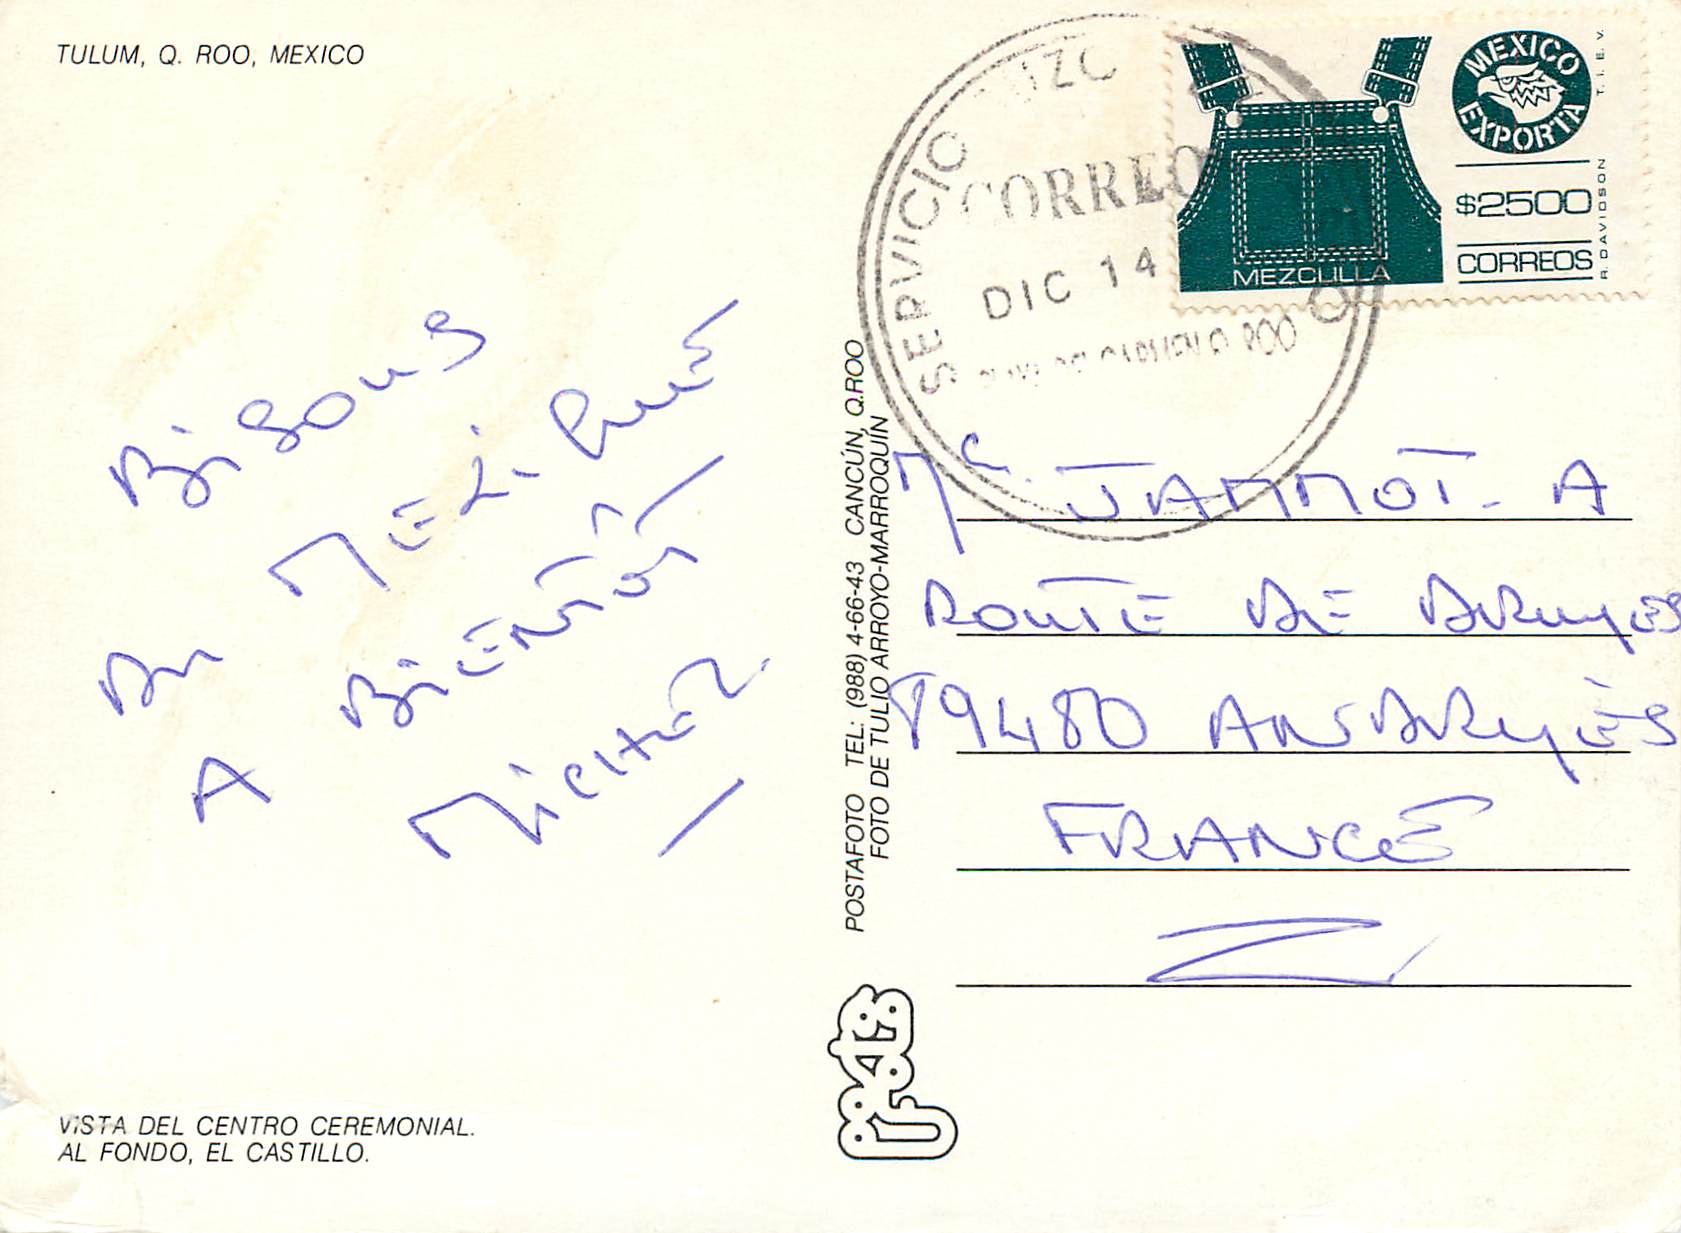 TULUM, Q. ROO, MEXICO
BisouS
Du MEXiquE
A BiENTôT
MicHEL
VISTA DEL CENTRO CEREMONIAL.
AL FONDO, EL CASTILLO.
POSTAFOTO TEL.: (988) 4-66-43 CANCÚN, Q.ROO
FOTO DE TULIO ARROYO-MARROQUÍN
SERVICIO
CORREO
DIC 14
CARMEN Q ROO
MEXICO
EXPORTA
$2500
CORREOS
MEZCLILLA
T. I. E. V.
R. DAVIDSON
JAMMOT. A
ROUTE DE
89480 ANDRYES
FRANCE